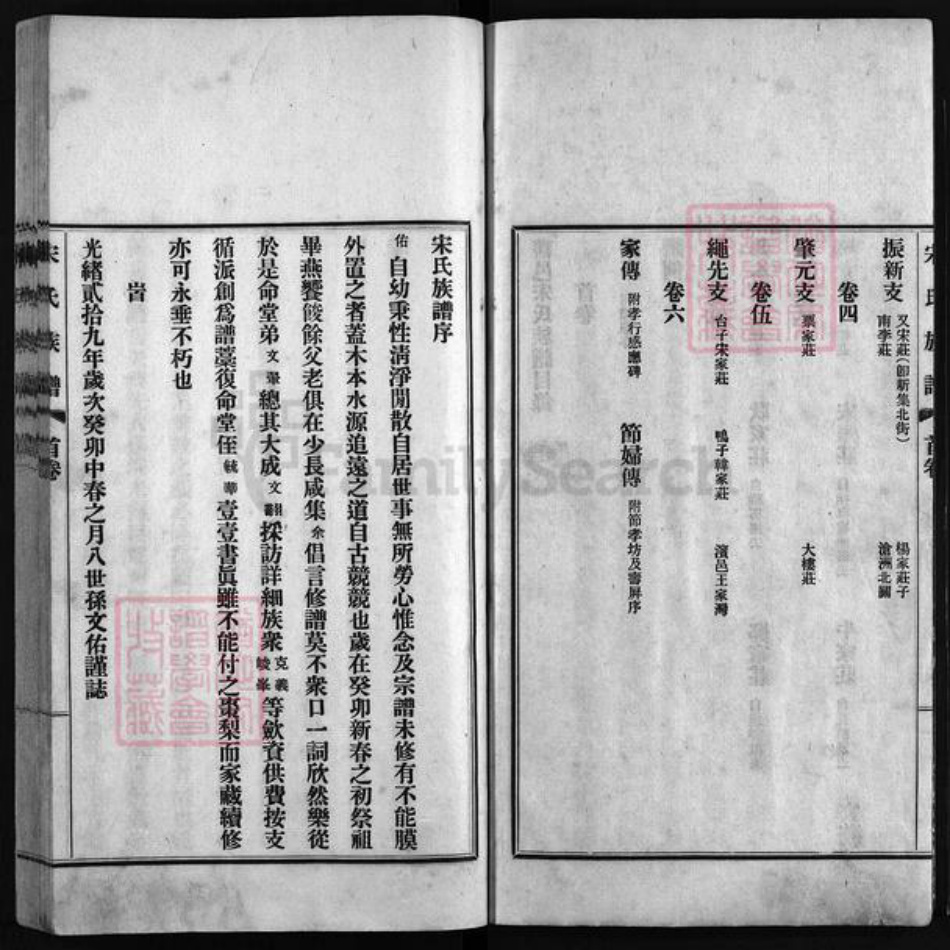 宋氏族譜 首卷
振新支 又宋莊(卽新集北街) 楊家莊子
南李莊 滄洲北關
卷四
肇元支 栗家莊 大樓莊
卷伍
繩先支 台子宋家莊 鴨子韓家莊 濱邑王家灣
卷六
家傳 附孝行感應碑 節婦傳 附節孝坊及壽屏序
宋氏族譜序
佑自幼秉性清淨閒散自居世事無所勞心惟念及宗譜未修有不能膜
外置之者蓋木本水源追遠之道自古競競也歲在癸卯新春之初祭祖
畢燕饗餕餘父老俱在少長咸集余倡言修譜莫不衆口一詞欣然樂從
於是命堂弟文翬總其大成文翿採訪詳細族衆克義峻峯等歛資供費按支
循派創爲譜藁復命堂侄毓華壹壹書眞雖不能付之棗梨而家藏續修
亦可永垂不朽也
旹
光緒貳拾九年歲次癸卯中春之月八世孫文佑謹誌
宋氏族譜 首卷
FamilySearch